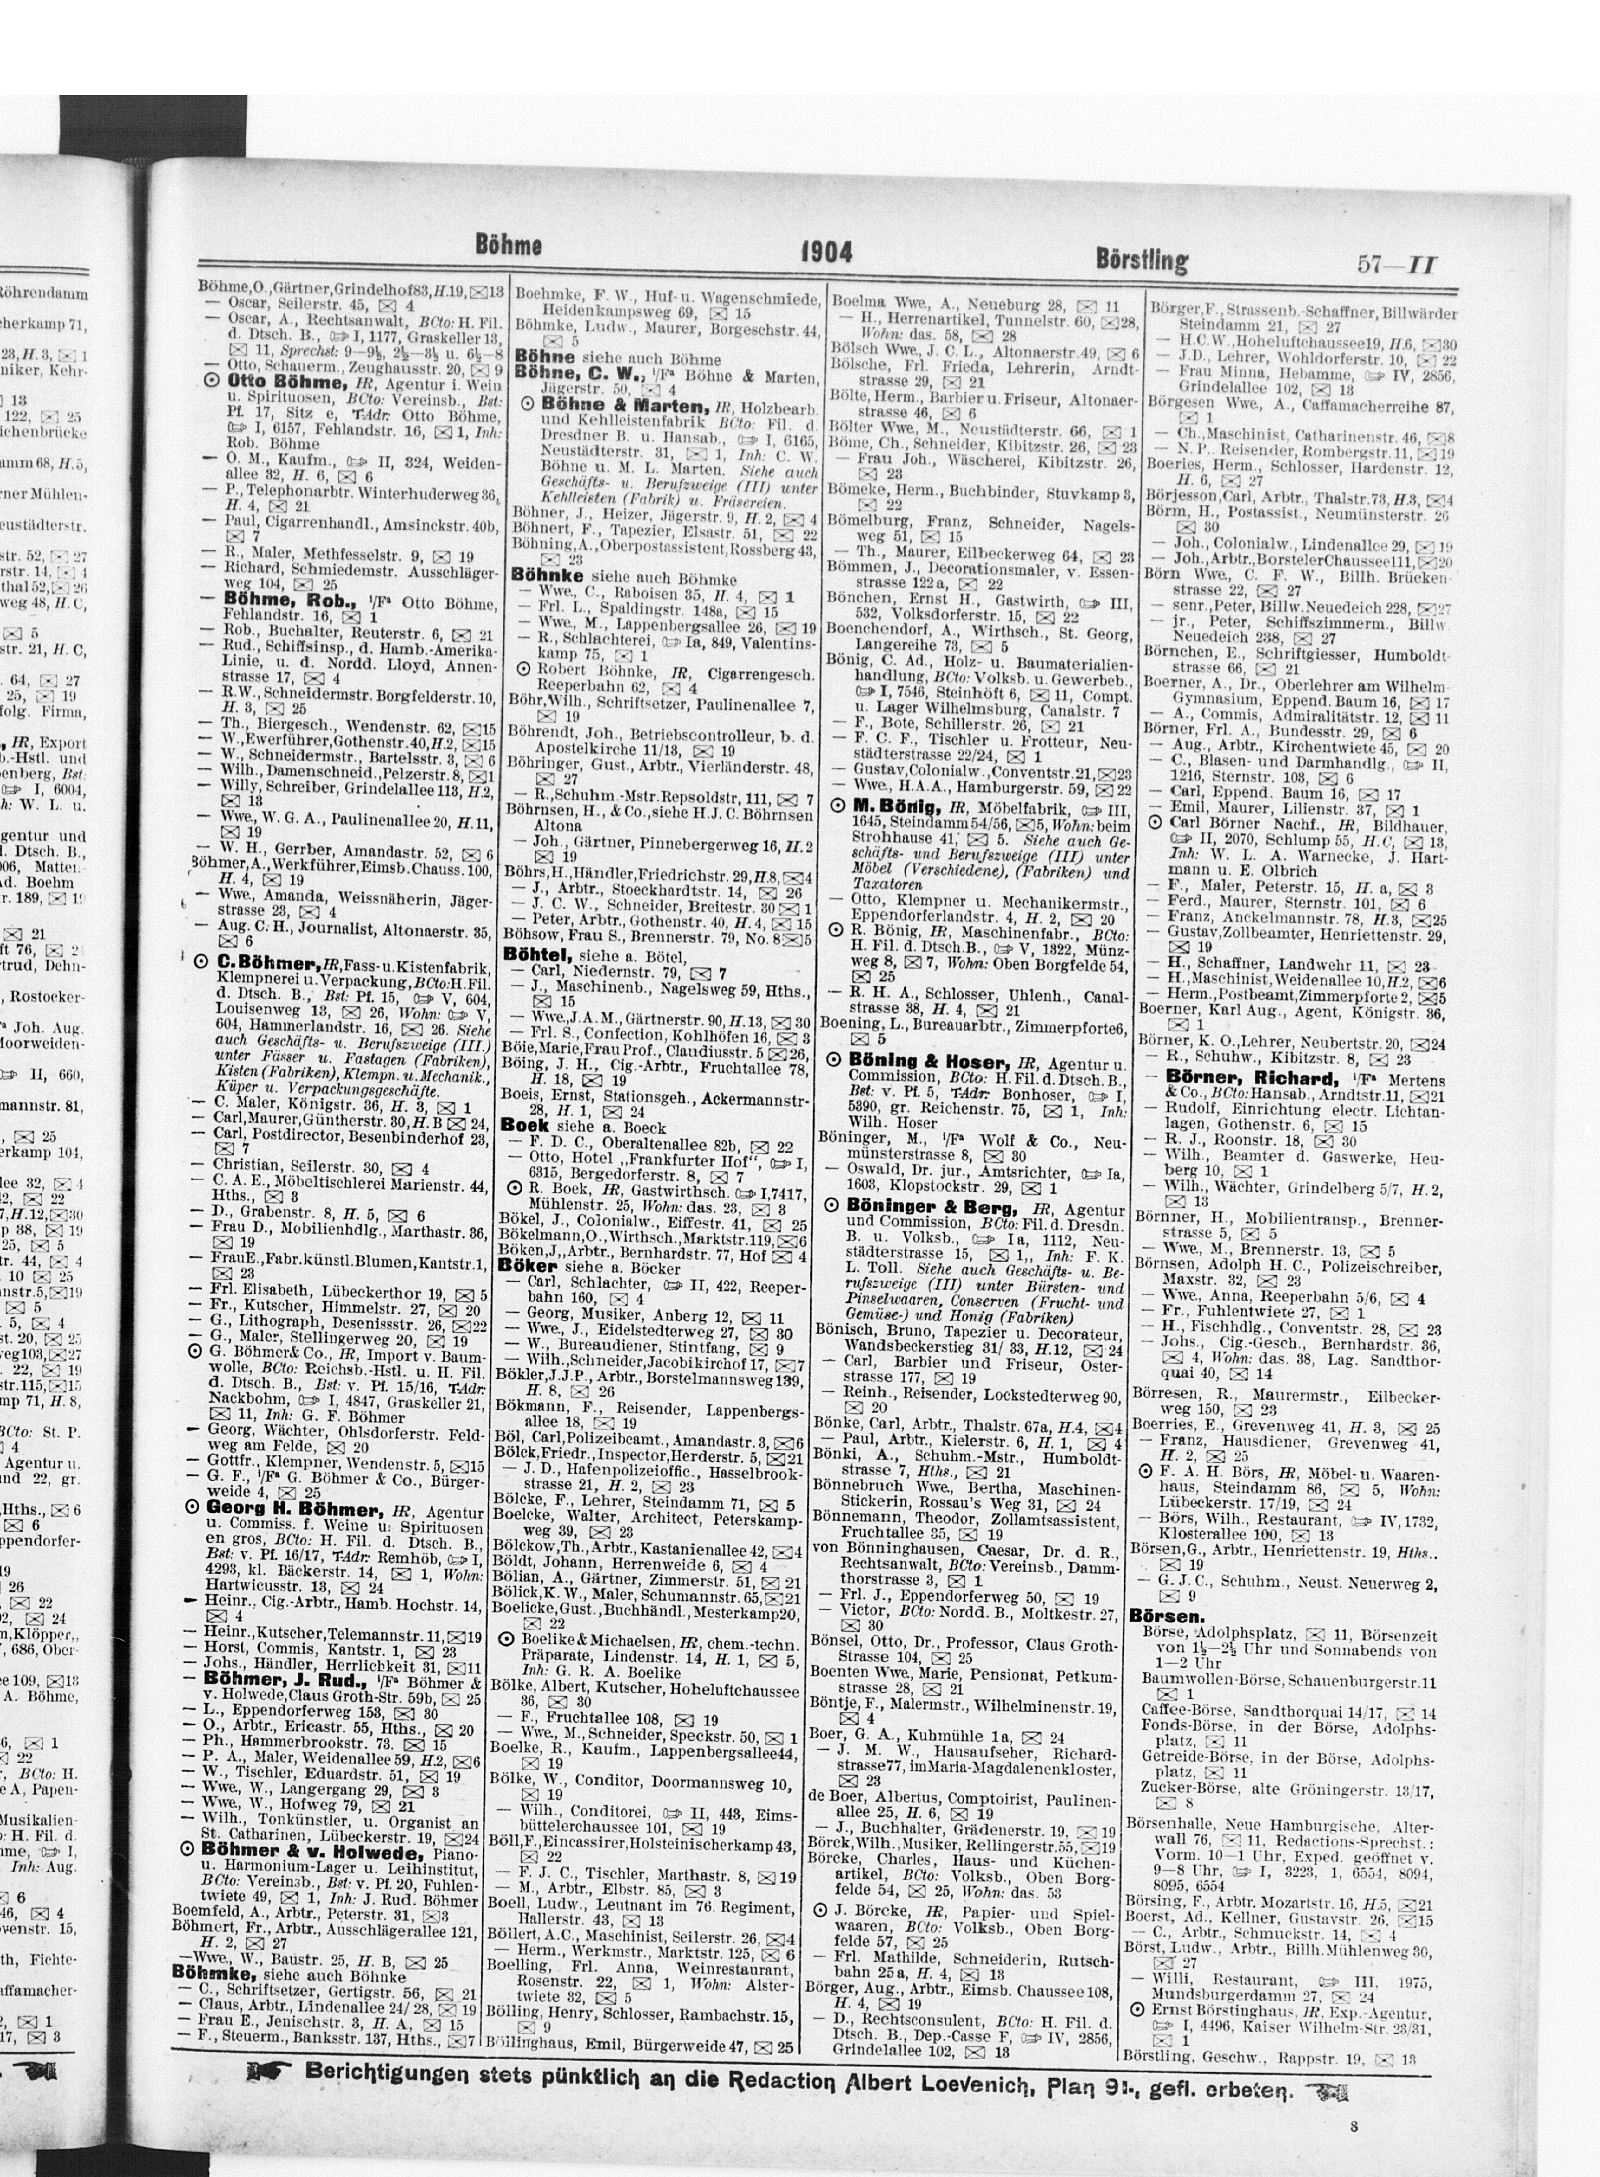 Böhme
1904
Börstling
57—II
Böhme, O., Gärtner, Grindelhof 83, H. 19, ✉ 13
— Oscar, Seilerstr. 45, ✉ 4
— Oscar, A., Rechtsanwalt, BCto: H. Fil.
d. Dtsch. B., I, 1177, Graskeller 13,
✉ 11, Sprechst: 9—9½, 2½—3½ u. 6½—8
— Otto, Schauerm., Zeughausstr. 20, ✉ 9
⊙ Otto Böhme, IR, Agentur i. Wein
u. Spirituosen, BCto: Vereinsb., Bst:
Pf. 17, Sitz e, T-Adr: Otto Böhme,
I, 6157, Fehlandstr. 16, ✉ 1, Inh:
Rob. Böhme
— O. M., Kaufm., II, 324, Weiden-
allee 32, H. 6, ✉ 6
— P., Telephonarbtr. Winterhuderweg 36,
H. 4, ✉ 21
— Paul, Cigarrenhandl., Amsinckstr. 40b,
✉ 7
— R., Maler, Methfesselstr. 9, ✉ 19
— Richard, Schmiedemstr. Ausschläger-
weg 104, ✉ 25
— Böhme, Rob., i/Fa Otto Böhme,
Fehlandstr. 16, ✉ 1
— Rob., Buchalter, Reuterstr. 6, ✉ 21
— Rud., Schiffsinsp., d. Hamb.-Amerika-
Linie, u. d. Nordd. Lloyd, Annen-
strasse 17, ✉ 4
— R.W., Schneidermstr. Borgfelderstr. 10,
H. 3, ✉ 25
— Th., Biergesch., Wendenstr. 62, ✉ 15
— W., Ewerführer, Gothenstr. 40, H. 2, ✉ 15
— W., Schneidermstr., Bartelsstr. 3, ✉ 6
— Wilh., Damenschneid., Pelzerstr. 8, ✉ 1
— Willy, Schreiber, Grindelallee 113, H. 2,
✉ 13
— Wwe, W. G. A., Paulinenallee 20, H. 11,
✉ 19
— W. H., Gerrber, Amandastr. 52, ✉ 6
Böhmer, A., Werkführer, Eimsb. Chauss. 100,
H. 4, ✉ 19
— Wwe, Amanda, Weissnäherin, Jäger-
strasse 23, ✉ 4
— Aug. C. H., Journalist, Altonaerstr. 35,
✉ 6
⊙ C. Böhmer, IR, Fass- u. Kistenfabrik,
Klempnerei u. Verpackung, BCto: H. Fil.
d. Dtsch. B., Bst: Pf. 15, V, 604,
Louisenweg 13, ✉ 26, Wohn: V,
604, Hammerlandstr. 16, ✉ 26. Siehe
auch Geschäfts- u. Berufszweige (III.)
unter Fässer u. Fastagen (Fabriken),
Kisten (Fabriken), Klempn. u. Mechanik.,
Küper u. Verpackungsgeschäfte.
— C. Maler, Königstr. 36, H. 3, ✉ 1
— Carl, Maurer, Güntherstr. 30, H. B ✉ 24,
— Carl, Postdirector, Besenbinderhof 23,
✉ 7
— Christian, Seilerstr. 30, ✉ 4
— C. A. E., Möbeltischlerei Marienstr. 44,
Hths., ✉ 3
— D., Grabenstr. 8, H. 5, ✉ 6
— Frau D., Mobilienhdlg., Marthastr. 36,
✉ 19
— Frau E., Fabr. künstl. Blumen, Kantstr. 1,
✉ 23
— Frl. Elisabeth, Lübeckerthor 19, ✉ 5
— Fr., Kutscher, Himmelstr. 27, ✉ 20
— G., Lithograph, Desenissstr. 26, ✉ 22
— G., Maler, Stellingerweg 20, ✉ 19
⊙ G. Böhmer & Co., IR, Import v. Baum-
wolle, BCto: Reichsb.-Hstl. u. H. Fil.
d. Dtsch. B., Bst: v. Pf. 15/16, T-Adr:
Nackbohm, I, 4847, Graskeller 21,
✉ 11, Inh: G. F. Böhmer
— Georg, Wächter, Ohlsdorferstr. Feld-
weg am Felde, ✉ 20
— Gottfr., Klempner, Wendenstr. 5, ✉ 15
— G. F., i/Fa G. Böhmer & Co., Bürger-
weide 4, ✉ 25
⊙ Georg H. Böhmer, IR, Agentur
u. Commiss. f. Weine u. Spirituosen
en gros, BCto: H. Fil. d. Dtsch. B.,
Bst: v. Pf. 16/17, T-Adr: Remhöb, I,
4293, kl. Bäckerstr. 14, ✉ 1, Wohn:
Hartwicusstr. 13, ✉ 24
— Heinr., Cig.-Arbtr., Hamb. Hochstr. 14,
✉ 4
— Heinr., Kutscher, Telemannstr. 11, ✉ 19
— Horst, Commis, Kantstr. 1, ✉ 23
— Johs., Händler, Herrlichkeit 31, ✉ 11
— Böhmer, J. Rud., i/Fa Böhmer &
v. Holwede, Claus Groth-Str. 59b, ✉ 25
— L., Eppendorferweg 153, ✉ 30
— O., Arbtr., Ericastr. 55, Hths., ✉ 20
— Ph., Hammerbrookstr. 73. ✉ 15
— P. A., Maler, Weidenallee 59, H. 2, ✉ 6
— W., Tischler, Eduardstr. 51, ✉ 19
— Wwe, W., Langergang 29, ✉ 3
— Wwe, W., Hofweg 79, ✉ 21
— Wilh., Tonkünstler, u. Organist an
St. Catharinen, Lübeckerstr. 19, ✉ 24
⊙ Böhmer & v. Holwede, Piano-
u. Harmonium-Lager u. Leihinstitut,
BCto: Vereinsb., Bst: v. Pf. 20, Fuhlen-
twiete 49, ✉ 1, Inh: J. Rud. Böhmer
Boemfeld, A., Arbtr., Peterstr. 31, ✉ 3
Böhmert, Fr., Arbtr., Ausschlägerallee 121,
H. 2, ✉ 27
— Wwe., W., Baustr. 25, H. B, ✉ 25
Böhmke, siehe auch Böhnke
— C., Schriftsetzer, Gertigstr. 56, ✉ 21
— Claus, Arbtr., Lindenallee 24/28, ✉ 19
— Frau E., Jenischstr. 3, H. A, ✉ 15
— F., Steuerm., Banksstr. 137, Hths., ✉ 7
Boehmke, F. W., Huf- u. Wagenschmiede,
Heidenkampsweg 69, ✉ 15
Böhmke, Ludw., Maurer, Borgeschstr. 44,
✉ 5
Böhne siehe auch Böhme
Böhne, C. W., i/Fa Böhne & Marten,
Jägerstr. 50, ✉ 4
⊙ Böhne & Marten, IR, Holzbearb.
und Kehlleistenfabrik BCto: Fil. d.
Dresdner B. u. Hansab., I, 6165,
Neustädterstr. 31, ✉ 1, Inh: C. W.
Böhne u. M. L. Marten. Siehe auch
Geschäfts- u. Berufszweige (III) unter
Kehlleisten (Fabrik) u. Fräsereien.
Böhner, J., Heizer, Jägerstr. 9, H. 2, ✉ 4
Böhnert, F., Tapezier, Elsastr. 51, ✉ 22
Böhning, A., Oberpostassistent, Rossberg 43,
✉ 23
Böhnke siehe auch Böhmke
— Wwe, C., Raboisen 35, H. 4, ✉ 1
— Frl. L., Spaldingstr. 148a, ✉ 15
— Wwe., M., Lappenbergsallee 26, ✉ 19
— R., Schlachterei, Ia, 849, Valentins-
kamp 75, ✉ 1
⊙ Robert Böhnke, IR, Cigarrengesch.
Reeperbahn 62, ✉ 4
Böhr, Wilh., Schriftsetzer, Paulinenallee 7,
✉ 19
Böhrendt, Joh., Betriebscontrolleur, b. d.
Apostelkirche 11/13, ✉ 19
Böhringer, Gust., Arbtr., Vierländerstr. 48,
✉ 27
— R., Schuhm.-Mstr. Repsoldstr, 111, ✉ 7
Böhrnsen, H., & Co., siehe H. J. C. Böhrnsen
Altona
— Joh., Gärtner, Pinnebergerweg 16, H. 2
✉ 19
Böhrs, H., Händler, Friedrichstr. 29, H. 8, ✉ 4
— J., Arbtr., Stoeckhardtstr. 14, ✉ 26
— J. C. W., Schneider, Breitestr. 30 ✉ 1
— Peter, Arbtr., Gothenstr. 40, H. 4, ✉ 15
Böhsow, Frau S., Brennerstr. 79, No. 8 ✉ 5
Böhtel, siehe a. Bötel,
— Carl, Niedernstr. 79, ✉ 7
— J., Maschinenb., Nagelsweg 59, Hths.,
✉ 15
— Wwe., J. A. M., Gärtnerstr. 90, H. 13, ✉ 30
— Frl. S., Confection, Kohlhöfen 16, ✉ 3
Böie, Marie, Frau Prof., Claudiusstr. 5 ✉ 26,
Böing, J. H., Cig.-Arbtr., Fruchtallee 78,
H. 18, ✉ 19
Boeis, Ernst, Stationsgeh., Ackermannstr-
28, H. 1, ✉ 24
Boek siehe a. Boeck
— F. D. C., Oberaltenallee 82b, ✉ 22
— Otto, Hotel „Frankfurter Hof“, I,
6315, Bergedorferstr. 8, ✉ 7
⊙ R. Boek, IR, Gastwirthsch. I, 7417,
Mühlenstr. 25, Wohn: das. 23, ✉ 3
Bökel, J., Colonialw., Eiffestr. 41, ✉ 25
Bökelmann, O., Wirthsch., Marktstr. 119, ✉ 6
Böken, J., Arbtr., Bernhardstr. 77, Hof ✉ 4
Böker siehe a. Böcker
— Carl, Schlachter, II, 422, Reeper-
bahn 160, ✉ 4
— Georg, Musiker, Anberg 12, ✉ 11
— Wwe., J., Eidelstedterweg 27, ✉ 30
— W., Bureaudiener, Stintfang, ✉ 9
— Wilh., Schneider, Jacobikirchof 17, ✉ 7
Bökler, J. J. P., Arbtr., Borstelmannsweg 139,
H. 8, ✉ 26
Bökmann, F., Reisender, Lappenbergs-
allee 18, ✉ 19
Böl, Carl, Polizeibeamt., Amandastr. 3, ✉ 6
Bölck, Friedr., Inspector, Herderstr. 5, ✉ 21
— J. D., Hafenpolizeioffic., Hasselbrook-
strasse 21, H. 2, ✉ 23
Bölcke, F., Lehrer, Steindamm 71, ✉ 5
Boelcke, Walter, Architect, Peterskamp-
weg 39, ✉ 23
Bölckow, Th., Arbtr., Kastanienallee 42, ✉ 4
Böldt, Johann, Herrenweide 6, ✉ 4
Bölian, A., Gärtner, Zimmerstr. 51, ✉ 21
Bölick, K. W., Maler, Schumannstr. 65, ✉ 21
Boelicke, Gust., Buchhändl., Mesterkamp 20,
✉ 22
⊙ Boelike & Michaelsen, IR, chem.-techn.
Präparate, Lindenstr. 14, H. 1, ✉ 5,
Inh: G. R. A. Boelike
Bölke, Albert, Kutscher, Hoheluftchaussee
36, ✉ 30
— F., Fruchtallee 108, ✉ 19
— Wwe., M., Schneider, Speckstr. 50, ✉ 1
Boelke, R., Kaufm., Lappenbergsallee 44,
✉ 19
Bölke, W., Conditor, Doormannsweg 10,
✉ 19
— Wilh., Conditorei, II, 443, Eims-
büttelerchaussee 101, ✉ 19
Böll, F., Eincassirer, Holsteinischerkamp 43,
✉ 22
— F. J. C., Tischler, Marthastr. 8, ✉ 19
— M., Arbtr., Elbstr. 85, ✉ 3
Boell, Ludw., Leutnant im 76. Regiment,
Hallerstr. 43, ✉ 13
Böllert, A.C., Maschinist, Seilerstr. 26, ✉ 4
— Herm., Werkmstr., Marktstr. 125, ✉ 6
Boelling, Frl. Anna, Weinrestaurant,
Rosenstr. 22, ✉ 1, Wohn: Alster-
twiete 32, ✉ 5
Bölling, Henry, Schlosser, Rambachstr. 15,
✉ 9
Böllinghaus, Emil, Bürgerweide 47, ✉ 25
Boelma Wwe, A., Neueburg 28, ✉ 11
— H., Herrenartikel, Tunnelstr. 60, ✉ 28,
Wohn: das. 58, ✉ 28
Bölsch Wwe., J. C. L., Altonaerstr. 49, ✉ 6
Bölsche, Frl. Frieda, Lehrerin, Arndt-
strasse 29, ✉ 21
Bölte, Herm., Barbier u. Friseur, Altonaer-
strasse 46, ✉ 6
Bölter Wwe., M., Neustädterstr. 66, ✉ 1
Böme, Ch., Schneider, Kibitzstr. 26, ✉ 23
— Frau Joh., Wäscherei, Kibitzstr. 26,
✉ 23
Bömeke, Herm., Buchbinder, Stuvkamp 3,
✉ 22
Bömelburg, Franz, Schneider, Nagels-
weg 51, ✉ 15
— Th., Maurer, Eilbeckerweg 64, ✉ 23
Bömmen, J., Decorationsmaler, v. Essen-
strasse 122a, ✉ 22
Bönchen, Ernst H., Gastwirth, III,
532, Volksdorferstr. 15, ✉ 22
Boenchendorf, A., Wirthsch., St. Georg,
Langereihe 73, ✉ 5
Bönig, C. Ad., Holz- u. Baumaterialien-
handlung, BCto: Volksb. u. Gewerbeb.,
I, 7546, Steinhöft 6, ✉ 11, Compt.
u. Lager Wilhelmsburg, Canalstr. 7
— F., Bote, Schillerstr. 26, ✉ 21
— F. C. F., Tischler u. Frotteur, Neu-
städterstrasse 22/24, ✉ 1
— Gustav, Colonialw., Conventstr. 21, ✉ 23
— Wwe., H.A.A., Hamburgerstr. 59, ✉ 22
⊙ M. Bönig, IR, Möbelfabrik, III,
1645, Steindamm 54/56, ✉ 5, Wohn: beim
Strohhause 41, ✉ 5. Siehe auch Ge-
schäfts- und Berufszweige (III) unter
Möbel (Verschiedene), (Fabriken) und
Taxatoren
— Otto, Klempner u. Mechanikermstr.,
Eppendorferlandstr. 4, H. 2, ✉ 20
⊙ R. Bönig, IR, Maschinenfabr., BCto:
H. Fil. d. Dtsch. B., V, 1322, Münz-
weg 8, ✉ 7, Wohn: Oben Borgfelde 54,
✉ 25
— R. H. A., Schlosser, Uhlenh., Canal-
strasse 38, H. 4, ✉ 21
Boening, L., Bureauarbtr., Zimmerpforte 6,
✉ 5
⊙ Böning & Hoser, IR, Agentur u.
Commission, BCto: H. Fil. d. Dtsch. B.,
Bst: v. Pf. 5, T-Adr: Bonhoser, I,
5390, gr. Reichenstr. 75, ✉ 1, Inh:
Wilh. Hoser
Böninger, M., i/Fa Wolf & Co., Neu-
münsterstrasse 8, ✉ 30
— Oswald, Dr. jur., Amtsrichter, Ia,
1603, Klopstockstr. 29, ✉ 1
⊙ Böninger & Berg, IR, Agentur
und Commission, BCto: Fil. d. Dresdn.
B. u. Volksb., Ia, 1112, Neu-
städterstrasse 15, ✉ 1,, Inh: F. K.
L. Toll. Siehe auch Geschäfts- u. Be-
rufszweige (III) unter Bürsten- und
Pinselwaaren, Conserven (Frucht- und
Gemüse-) und Honig (Fabriken)
Bönisch, Bruno, Tapezier u. Decorateur,
Wandsbeckerstieg 31/33, H. 12, ✉ 24
— Carl, Barbier und Friseur, Oster-
strasse 177, ✉ 19
— Reinh., Reisender, Lockstedterweg 90,
✉ 20
Bönke, Carl, Arbtr., Thalstr. 67a, H. 4, ✉ 4
— Paul, Arbtr., Kielerstr. 6, H. 1, ✉ 4
Bönki, A., Schuhm.-Mstr., Humboldt-
strasse 7, Hths., ✉ 21
Bönnebruch Wwe., Bertha, Maschinen-
Stickerin, Rossau's Weg 31, ✉ 24
Bönnemann, Theodor, Zollamtsassistent,
Fruchtallee 35, ✉ 19
von Bönninghausen, Caesar, Dr. d. R.,
Rechtsanwalt, BCto: Vereinsb., Damm-
thorstrasse 3, ✉ 1
— Frl. J., Eppendorferweg 50, ✉ 19
— Victor, BCto: Nordd. B., Moltkestr. 27,
✉ 30
Bönsel, Otto, Dr., Professor, Claus Groth-
Strasse 104, ✉ 25
Boenten Wwe., Marie, Pensionat, Petkum-
strasse 28, ✉ 21
Böntje, F., Malermstr., Wilhelminenstr. 19,
✉ 4
Boer, G. A., Kuhmühle 1a, ✉ 24
— J. M. W., Hausaufseher, Richard-
strasse 77, im Maria-Magdalenenkloster,
✉ 23
de Boer, Albertus, Comptoirist, Paulinen-
allee 25, H. 6, ✉ 19
— J., Buchhalter, Grädenerstr. 19, ✉ 19
Börck, Wilh., Musiker, Rellingerstr. 55, ✉ 19
Börcke, Charles, Haus- und Küchen-
artikel, BCto: Volksb., Oben Borg-
felde 54, ✉ 25, Wohn: das. 53
⊙ J. Börcke, IR, Papier- und Spiel-
waaren, BCto: Volksb., Oben Borg-
felde 57, ✉ 25
— Frl. Mathilde, Schneiderin, Rutsch-
bahn 25a, H. 4, ✉ 13
Börger, Aug., Arbtr., Eimsb. Chaussee 108,
H. 4, ✉ 19
— D., Rechtsconsulent, BCto: H. Fil. d.
Dtsch. B., Dep.-Casse F, IV, 2856,
Grindelallee 102, ✉ 13
Börger, F., Strassenb.-Schaffner, Billwärder
Steindamm 21, ✉ 27
— H.C.W., Hoheluftchaussee 19, H. 6, ✉ 30
— J.D., Lehrer, Wohldorferstr. 10, ✉ 22
— Frau Minna, Hebamme, IV, 2856,
Grindelallee 102, ✉ 13
Börgesen Wwe., A., Caffamacherreihe 87,
✉ 1
— Ch., Maschinist, Catharinenstr. 46, ✉ 8
— N. P., Reisender, Rombergstr. 11, ✉ 19
Boeries, Herm., Schlosser, Hardenstr. 12,
H. 6, ✉ 27
Börjesson, Carl, Arbtr., Thalstr. 73, H. 3, ✉ 4
Börm, H., Postassist., Neumünsterstr. 26
✉ 30
— Joh., Colonialw., Lindenallee 29, ✉ 19
— Joh., Arbtr., Borsteler Chaussee 111, ✉ 20
Börn Wwe., C. F. W., Billh. Brücken-
strasse 22, ✉ 27
— senr., Peter, Billw. Neuedeich 228, ✉ 27
— jr., Peter, Schiffszimmerm., Billw.
Neuedeich 238, ✉ 27
Börnchen, E., Schriftgiesser, Humboldt-
strasse 66, ✉ 21
Boerner, A., Dr., Oberlehrer am Wilhelm-
Gymnasium, Eppend. Baum 16, ✉ 17
— A., Commis, Admiralitätstr. 12, ✉ 11
Börner, Frl. A., Bundesstr. 29, ✉ 6
— Aug., Arbtr., Kirchentwiete 45, ✉ 20
— C., Blasen- und Darmhandlg., II,
1216, Sternstr. 103, ✉ 6
— Carl, Eppend. Baum 16, ✉ 17
— Emil, Maurer, Lilienstr. 37, ✉ 1
⊙ Carl Börner Nachf., IR, Bildhauer,
II, 2070, Schlump 55, H. C, ✉ 13,
Inh: W. L. A. Warnecke, J. Hart-
mann u. E. Olbrich
— F., Maler, Peterstr. 15, H. a, ✉ 3
— Ferd., Maurer, Sternstr. 101, ✉ 6
— Franz, Anckelmannstr. 78, H. 3, ✉ 25
— Gustav, Zollbeamter, Henriettenstr. 29,
✉ 19
— H., Schaffner, Landwehr 11, ✉ 23
— H., Maschinist, Weidenallee 10, H. 2, ✉ 6
— Herm., Postbeamt, Zimmerpforte 2, ✉ 5
Boerner, Karl Aug., Agent, Königstr. 36,
✉ 1
Börner, K. O., Lehrer, Neubertstr. 20, ✉ 24
— R., Schuhw., Kibitzstr. 8, ✉ 23
— Börner, Richard, i/Fa Mertens
& Co., BCto: Hansab., Arndtstr. 11, ✉ 21
— Rudolf, Einrichtung electr. Lichtan-
lagen, Gothenstr. 6, ✉ 15
— R. J., Roonstr. 18, ✉ 30
— Wilh., Beamter d. Gaswerke, Heu-
berg 10, ✉ 1
— Wilh., Wächter, Grindelberg 5/7, H. 2,
✉ 13
Börnner, H., Mobilientransp., Brenner-
strasse 5, ✉ 5
— Wwe., M., Brennerstr. 13, ✉ 5
Börnsen, Adolph H. C., Polizeischreiber,
Maxstr. 32, ✉ 23
— Wwe., Anna, Reeperbahn 5/6, ✉ 4
— Fr., Fuhlentwiete 27, ✉ 1
— H., Fischhdlg., Conventstr. 28, ✉ 23
— Johs., Cig.-Gesch., Bernhardstr. 36,
✉ 4, Wohn: das. 38, Lag. Sandthor-
quai 40, ✉ 14
Börresen, R., Maurermstr., Eilbecker-
weg 150, ✉ 23
Boerries, E., Grevenweg 41, H. 3, ✉ 25
— Franz, Hausdiener, Grevenweg 41,
H. 2, ✉ 25
⊙ F. A. H. Börs, IR, Möbel- u. Waaren-
haus, Steindamm 86, ✉ 5, Wohn:
Lübeckerstr. 17/19, ✉ 24
— Börs, Wilh., Restaurant, IV, 1732,
Klosterallee 100, ✉ 13
Börsen, G., Arbtr., Henriettenstr. 19, Hths..
✉ 19
— G. J. C., Schuhm., Neust. Neuerweg 2,
✉ 9
Börsen.
Börse, Adolphsplatz, ✉ 11, Börsenzeit
von 1½—2½ Uhr und Sonnabends von
1—2 Uhr
Baumwollen-Börse, Schauenburgerstr. 11
✉ 1
Caffee-Börse, Sandthorquai 14/17, ✉ 14
Fonds-Börse, in der Börse, Adolphs-
platz, ✉ 11
Getreide-Börse, in der Börse, Adolphs-
platz, ✉ 11
Zucker-Börse, alte Gröningerstr. 13/17,
✉ 8
Börsenhalle, Neue Hamburgische, Alter-
wall 76, ✉ 11, Redactions-Sprechst.:
Vorm. 10—1 Uhr, Exped. geöffnet v.
9—8 Uhr, I, 3223, 1, 6554, 8094,
8095, 6554
Börsing, F., Arbtr. Mozartstr. 16, H. 5, ✉ 21
Boerst, Ad., Kellner, Gustavstr. 26, ✉ 15
— C., Arbtr., Schmuckstr. 14, ✉ 4
Börst, Ludw., Arbtr., Billh. Mühlenweg 30,
✉ 27
— Willi, Restaurant, III, 1975,
Mundsburgerdamm 27, ✉ 24
⊙ Ernst Börstinghaus, IR, Exp.-Agentur,
I, 4496, Kaiser Wilhelm-Str. 23/31,
✉ 1
Börstling, Geschw., Rappstr. 19, ✉ 13
Berichtigungen stets pünktlich an die Redaction Albert Loevenich, Plan 9 I., gefl. erbeten.
8